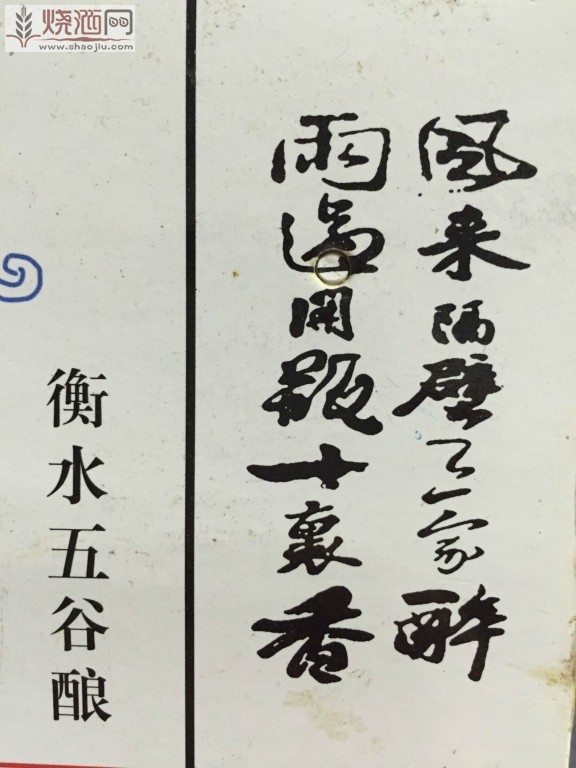 烧酒网
www.shaojiu.com
风来隔壁三家醉
雨過開瓶十裏香
衡水五谷酿